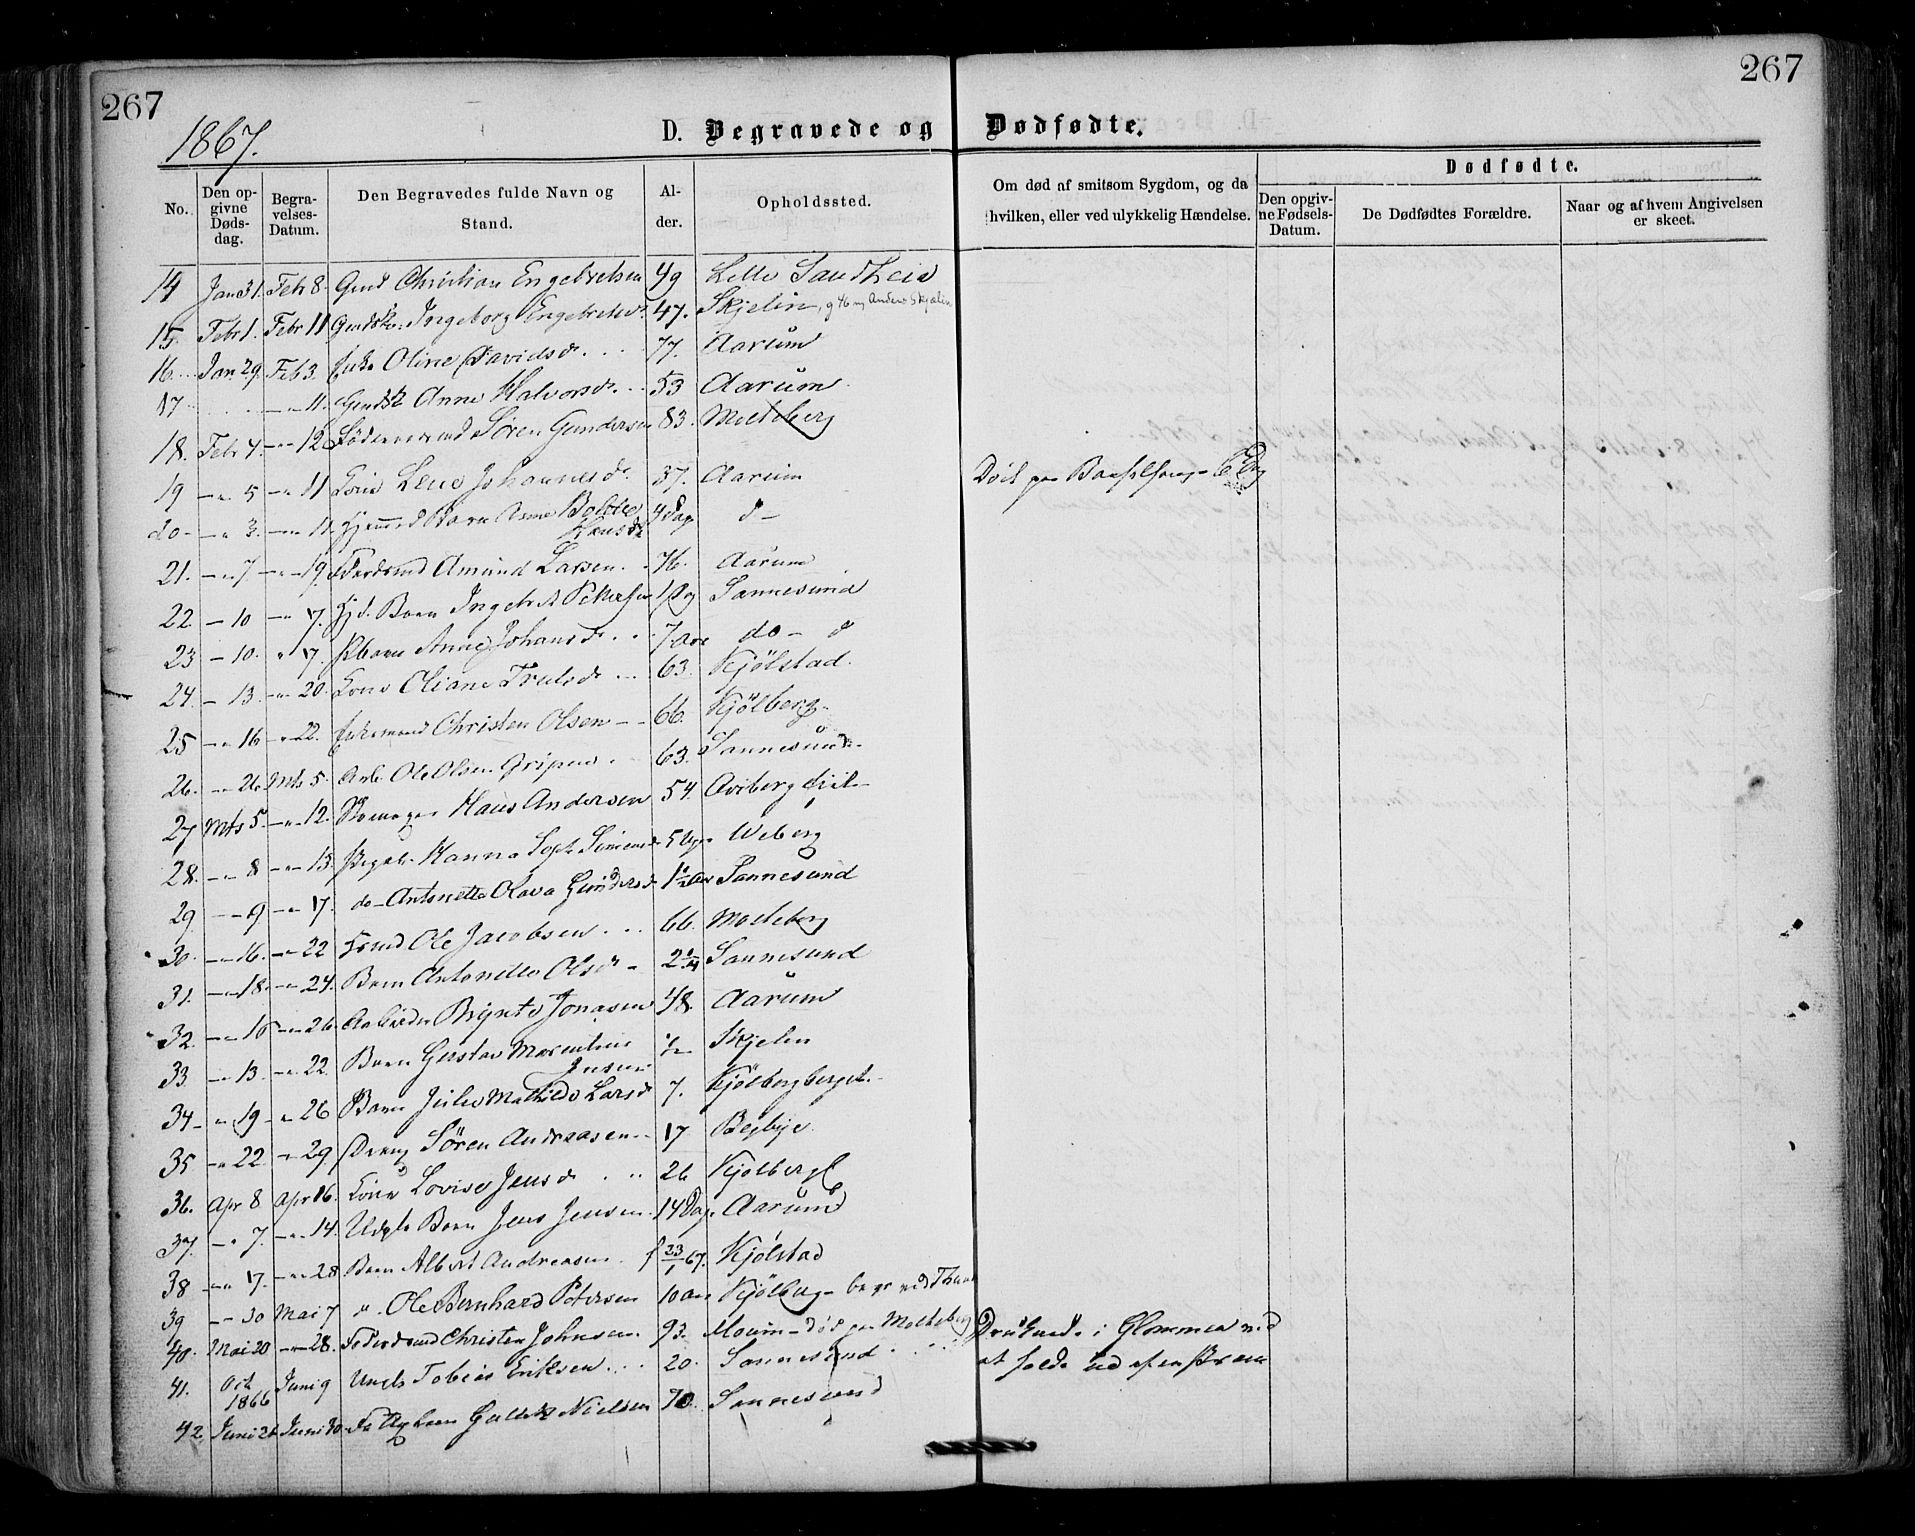 267
267
1867.
D. Begravede og Dødfødte.
No.
Den opgivne Dødsdag.
Begravelses-Datum.
Den Begravedes fulde Navn og Stand.
Alder.
Opholdssted.
Om død af smitsom Sygdom, og da hvilken, eller ved ulykkelig Hændelse.
Dødfødte.
Den opgivne Fødsels-Datum.
De Dødfødtes Forældre.
Naar og af hvem Angivelsen er skeet.
14 Jan 31. Feb 8. Christian Engebretsen 49 Lille Sandheia
15. Febr 1. Febr 11 Ingeborg Engebretsd. 47. Skjelin, Anders Skjelin
16. Jan. 29. Feb 3. Enke Oline Davidsd. 77. Aarum
17 — 11. Anne Halvorsd. 53 Aarum
18. Febr 4. — 12 Søren Gundersen 83. Molteberg
19 — 5 — 11 Kone Lene Johannesd. 37. Aarum
20 — 3. — 11. Barn Bolette Hansd. 4 Dage d—
21. — 7 — 19. Amund Larsen 76. Aarum
22. — 10 — 17. Barn Petersen 1 Dag Sannesund
23 — 10. 17. Anne Johansd. 7 Aar do— d
24 — 13. — 20. Kone Oliane Trulsd. 63. Kjølstad.
25 — 16 — 22. Enkemand Christen Olsen — 66. Kjølberg
26. — 26. Mts 5. Arb. Ole Olsen 63. Sannesund
27 Mts 5. — 12. Skomager Hans Andersen 54. Aviberg
28. — 8 — 13. Hanna 5 Uger Weberg
29 — 9 — 17. do— Antonette Olava Gundersd 1½ Aar Sannesund
30. — 16. — 22 Ole Jacobsen 66. Molteberg
31. — 18. — 24. Barn Antonette Olsd. 2¼ Sannesund
32. — 15 — 26. Arbeider Bryntе Jonasen 48. Aarum
33 — 13. — 22. Barn Gustav Marentius Jensen ½ Skjelin
34 — 19 — 26 Barn Julie Mathilde Larsd 7. Kjølbergberget.
35 — 22. — 29 Dreng Søren Andreasen 17 Begbye.
36. Apr 8 Apr 16. Kone Lovise Jensd. 26 Kjølberg
37. — 7. — 14. Barn Jens Jensen. 14 Dage Aarum
38 — 17. — 28 Barn Albert Andreasen. f 23/1 67. Kjølstad
39 — 30 Mai 7 " Ole Bernhard Petersen 10 Aar Kjølberg — begr ved Thune
40. Mai 20 — 28. Christen Johnsen. 93. Moum — død paa Molteberg
41. Oct 1866 Juni 9 Ungk Tobias Eriksen 20. Sannesund
42. Juni 26 Juni 30 Nielsen 70. Sannesund
Død paa Barselseng
Druknede i Glommen ved
at falde ud af en Pram